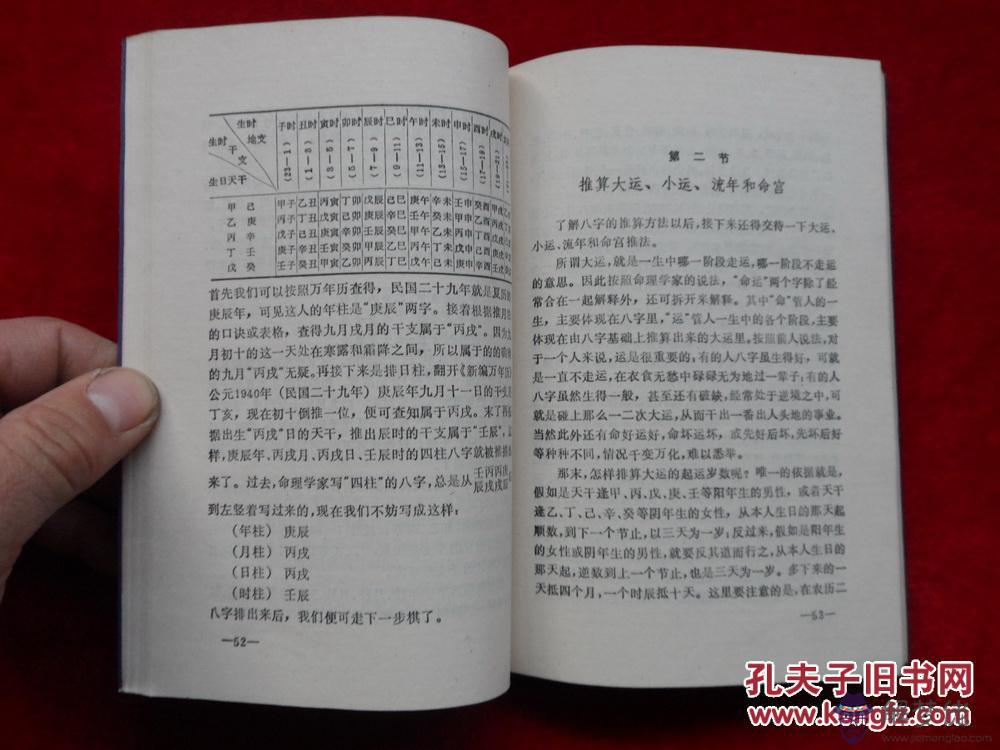 生时
地支
生时
干
支
生日天干
子时 丑时 寅时 卯时 辰时 巳时 午时 未时 申时 酉时 戌时
(23—1) (1—3) (3—5) (5—7) (7—9) (9—11) (11—13) (13—15) (15—17) (17—19)
甲 己 甲子 乙丑 丙寅 丁卯 戊辰 己巳 庚午 辛未 壬申 癸酉 甲戌
乙 庚 丙子 丁丑 戊寅 己卯 庚辰 辛巳 壬午 癸未 甲申 乙酉 丙戌
丙 辛 戊子 己丑 庚寅 辛卯 壬辰 癸巳 甲午 乙未 丙申 丁酉 戊戌
丁 壬 庚子 辛丑 壬寅 癸卯 甲辰 乙巳 丙午 丁未 戊申 己酉 庚戌
戊 癸 壬子 癸丑 甲寅 乙卯 丙辰 丁巳 戊午 己未 庚申 辛酉 壬戌
首先我们可以按照万年历查得，民国二十九年就是夏历的
庚辰年，可见这人的年柱是“庚辰”两字。接着根据推月
的口诀或表格，查得九月戌月的干支属于“丙戌”。因为九
月初十的这一天处在寒露和霜降之间，所以属于的的确确
的九月“丙戌”无疑。再接下来是排日柱，翻开《新编万年历》
公元1940年（民国二十九年）庚辰年九月十一日的干支
丁亥，现在初十倒推一位，便可查知属于丙戌。末了再
据出生“丙戌”日的天干，推出辰时的干支属于“壬辰”，这
样，庚辰年、丙戌月、丙戌日、壬辰时的四柱八字就被推排
来了。过去，命理学家写“四柱”的八字，总是从壬丙丙庚
辰戌戌辰
到左竖着写过来的，现在我们不妨写成这样：
（年柱） 庚辰
（月柱） 丙戌
（日柱） 丙戌
（时柱） 壬辰
八字排出来后，我们便可走下一步棋了。
—52—
第二节
推算大运、小运、流年和命宫
了解八字的推算方法以后，接下来还得交待一下大运、
小运、流年和命宫推法。
所谓大运，就是一生中哪一阶段走运，哪一阶段不走运
的意思。因此按照命理学家的说法，“命运”两个字除了经
常合在一起解释外，还可拆开来解释。其中“命”管人的一
生，主要体现在八字里，“运”管人一生中的各个阶段，主要
体现在由八字基础上推算出来的大运里。按照前人说法，对
于一个人来说，运是很重要的；有的人八字虽生得好，可就
是一直不走运，在衣食无愁中碌碌无为地过一辈子；有的人
八字虽然生得一般，甚至还有破缺，经常处于逆境之中，可
就是碰上那么一二次大运，从而干出一番出人头地的事业。
当然此外还有命好运好，命坏运坏，或先好后坏，先坏后好
等种种不同，情况千变万化，难以悉举。
那末，怎样排算大运的起运岁数呢？唯一的依据就是，
假如是天干逢甲、丙、戊、庚、壬等阳年生的男性，或者天干
逢乙、丁、己、辛、癸等阴年生的女性，从本人生日的那天起
顺数，到下一个节止，以三天为一岁；反过来，假如是阳年生
的女性或阴年生的男性，就要反其道而行之，从本人生日的
那天起，逆数到上一个节止，也是三天为一岁。多下来的一
天抵四个月，一个时辰抵十天。这里要注意的是，在农历二
—53—
孔夫子旧书网
www.kongfz.com
解梦佬
www.jiemenglao.com